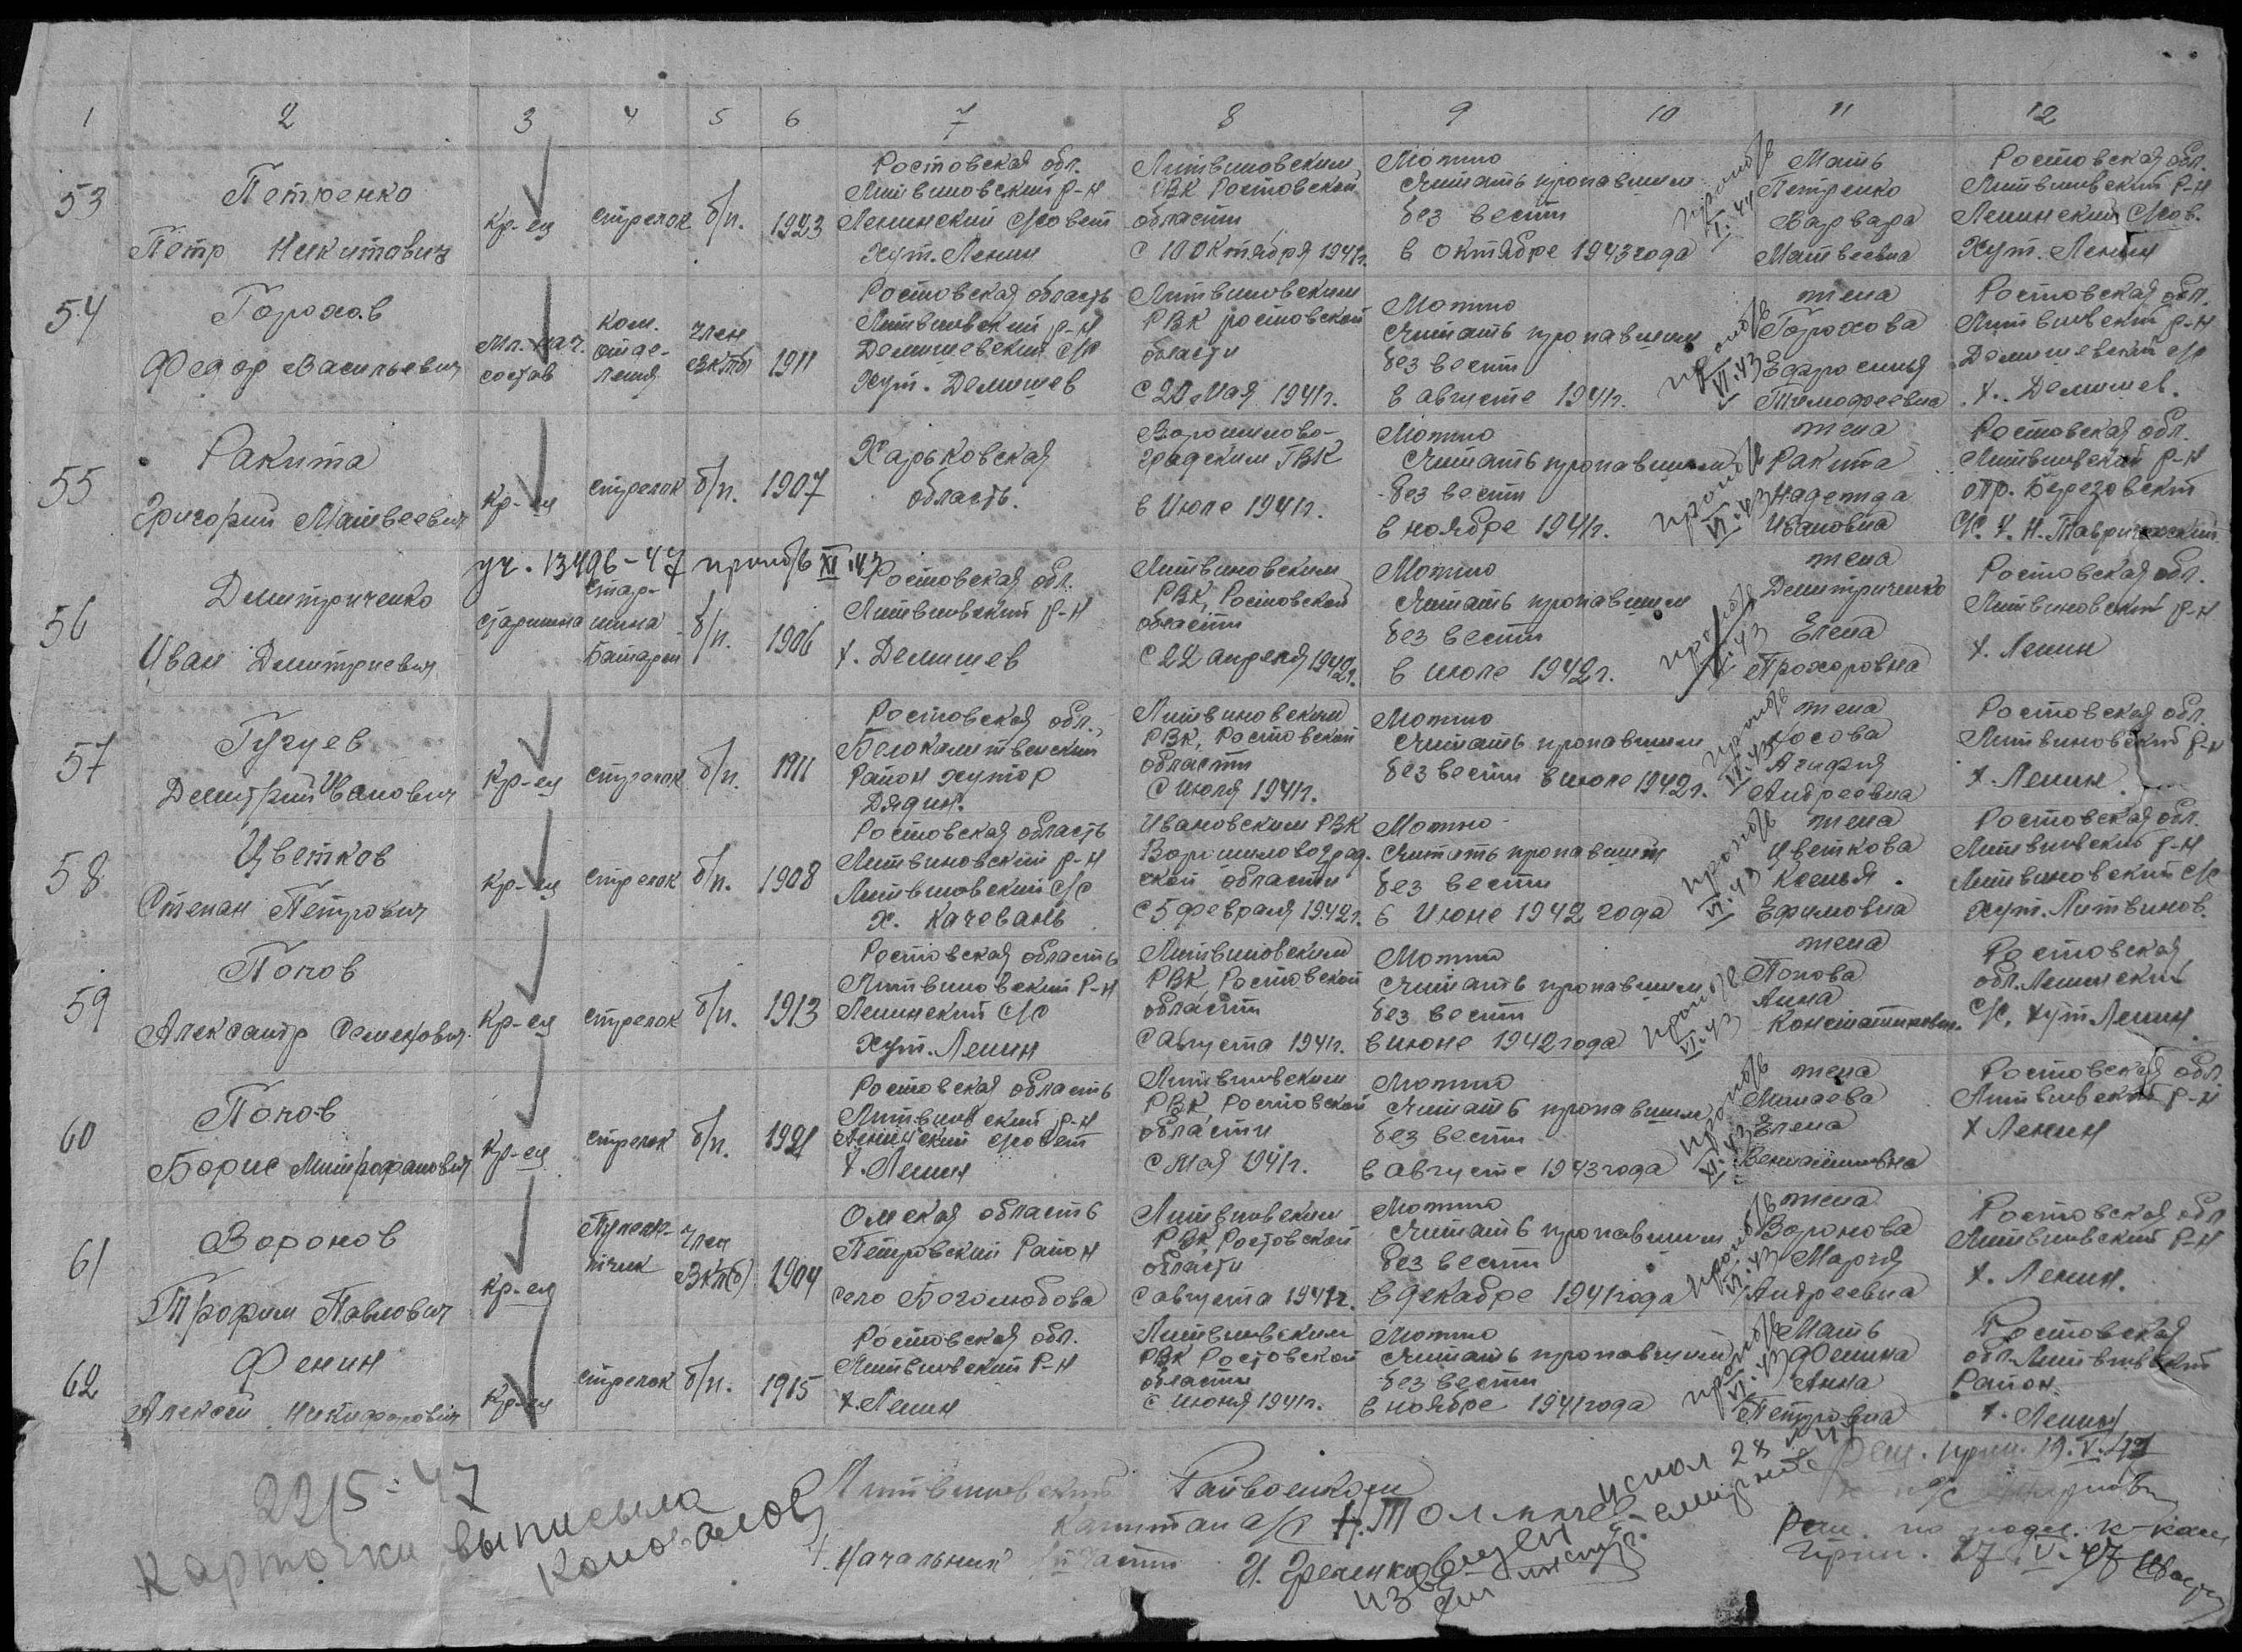 1 2 3 4 5 6 7 8 9 10 11 12
53
Петренко
Пётр Никитович
кр-ец
стрелок
б/п.
1923
Ростовская обл.
Литвиновский р-н
Ленинский с/совет
хут. Ленин
Литвиновским
РВК Ростовской
области
с 10 октября 1941г.
Можно
считать пропавшим
без вести
в октябре 1943 года
проп б/в
I. 44
Мать
Петренко
Варвара
Матвеевна
Ростовская обл.
Литвиновский р-н
Ленинский с/сов.
хут. Ленин
54
Горохов
Федор Васильевич
Мл. нач.
состав
Ком.
отде-
ления
член
ВКП(б)
1911
Ростовская область
Литвиновский р-н
Демишевский с/с
хут. Демишев
Литвиновским
РВК ростовской
области
с 20 мая 1941г.
Можно
считать пропавшим
без вести
в августе 1941г.
проп б/в
VI. 43
жена
Горохова
Ефросинья
Тимофеевна
Ростовская обл.
Литвиновский р-н
Демишевский с/с
х. Демишев.
55
Ракита
Григорий Матвеевич
кр-ец
стрелок
б/п.
1907
Харьковская
область.
Ворошилово-
градским ГВК
в июле 1941г.
Можно
считать пропавшим
без вести
в ноябре 1941г.
проп б/в
VI. 43
жена
Ракита
Надежда
Ивановна
Ростовская обл.
Литвиновский р-н
отр. Березовский
с/с. х. Н.-Таврический
уч. 13496-47 проп б/в XI. 43
56
Демитриченко
Иван Демитриевич
старшина
стар-
шина
батареи
б/п.
1906
Ростовская обл.
Литвиновский р-н
х. Демишев
Литвиновским
РВК, Ростовской
области
с 22 апреля 1942г.
Можно
считать пропавшим
без вести
в июле 1942г.
жена
Демитриченко
Елена
Прохоровна
Ростовская обл.
Литвиновский р-н
х. Ленин
57
Гугуев
Демитрий Иванович
кр-ец
стрелок
б/п.
1911
Ростовская обл.,
Белокалитвенский
район хутор
Дядин.
Литвиновским
РВК, Ростовской
области
с июля 1941г.
Можно
считать пропавшим
без вести в июле 1942г.
проп б/в
VI. 43
жена
Косова
Агифия
Андреевна
Ростовская обл.
Литвиновский р-н
х. Ленин.
58
Цветков
Степан Петрович
кр-ец
стрелок
б/п.
1908
Ростовская область
Литвиновский р-н
Литвиновский с/с
х. Качевань
Ивановским РВК
Ворошиловоград-
ской области
с 5 февраля 1942г.
Можно
считать пропавшим
без вести
в Июне 1942 года
проп б/в
VI. 43
жена
Цветкова
Ксенья.
Ефимовна
Ростовская обл.
Литвиновский р-н
Литвиновский с/с
хут. Литвинов.
59
Попов
Александр Семенович
кр-ец
стрелок
б/п.
1913
Ростовская область
Литвиновский р-н
Ленинский с/с
хут. Ленин
Литвиновским
РВК, Ростовской
области
с августа 1941г.
Можно
считать пропавшим
без вести
в июне 1942 года
проп б/в
VI. 43
жена
Попова
Анна
Константиновн.
Ростовская
обл. Ленинский
с/с, хут Ленин
60
Попов
Борис Митрофанович
кр-ец
стрелок
б/п.
1921
Ростовская область
Литвиновский р-н
Ленинский с/совет
х. Ленин
Литвиновским
РВК, Ростовской
области
с мая 1941г.
Можно
считать пропавшим
без вести
в августе 1943 года
проп б/в
XI. 43
жена
Минаева
Елена
Вениаминовна
Ростовская обл
Литвиновский р-н
х Ленин
61
Воронов
Трофим Павлович
кр-ец
Пулемет-
тчик
член
ВКП(б)
1904
Омская область
Петровский район
село Боголюбова
Литвиновским
РВК, Ростовской
области
с августа 1941г.
Можно
считать пропавшим
без вести
в декабре 1941 года
проп б/в
VI. 43
жена
Воронова
Мария
Андреевна
Ростовская обл
Литвиновский р-н
х. Ленин.
62
Фенин
Алексей Никифорович
кр-ец
стрелок
б/п.
1915
Ростовская обл.
Литвиновский р-н
х. Ленин
Литвиновским
РВК Ростовской
области
с июня 1941г.
Можно
считать пропавшим
без вести
в ноябре 1941 года
проп б/в
VI. 43
Мать
Фенина
Анна
Петровна
Ростовская
обл. Литвиновский
район.
х. Ленин
22/5-47
Карточки выписала
Коновалова
Литвиновский Райвоенком
капитан а/с
Начальник части
Реш. прин. 19. V. 47
Реш. по
прин. 27. V. 47